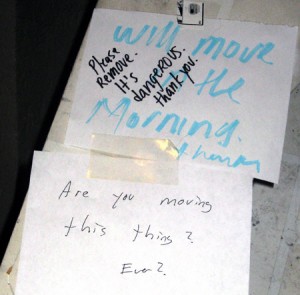 Will move
the
Morning.
Please
Remove.
It's
dangerous.
thank you.
Are you moving
this thing?
Ever?